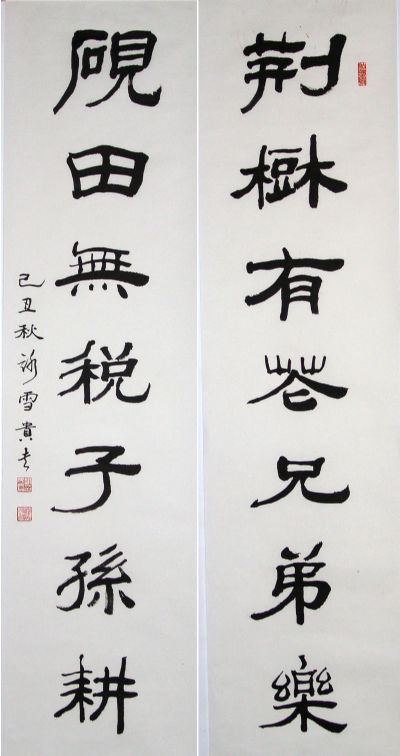 荊樹有花兄弟樂
硯田無税子孫耕
己丑秋雪貴